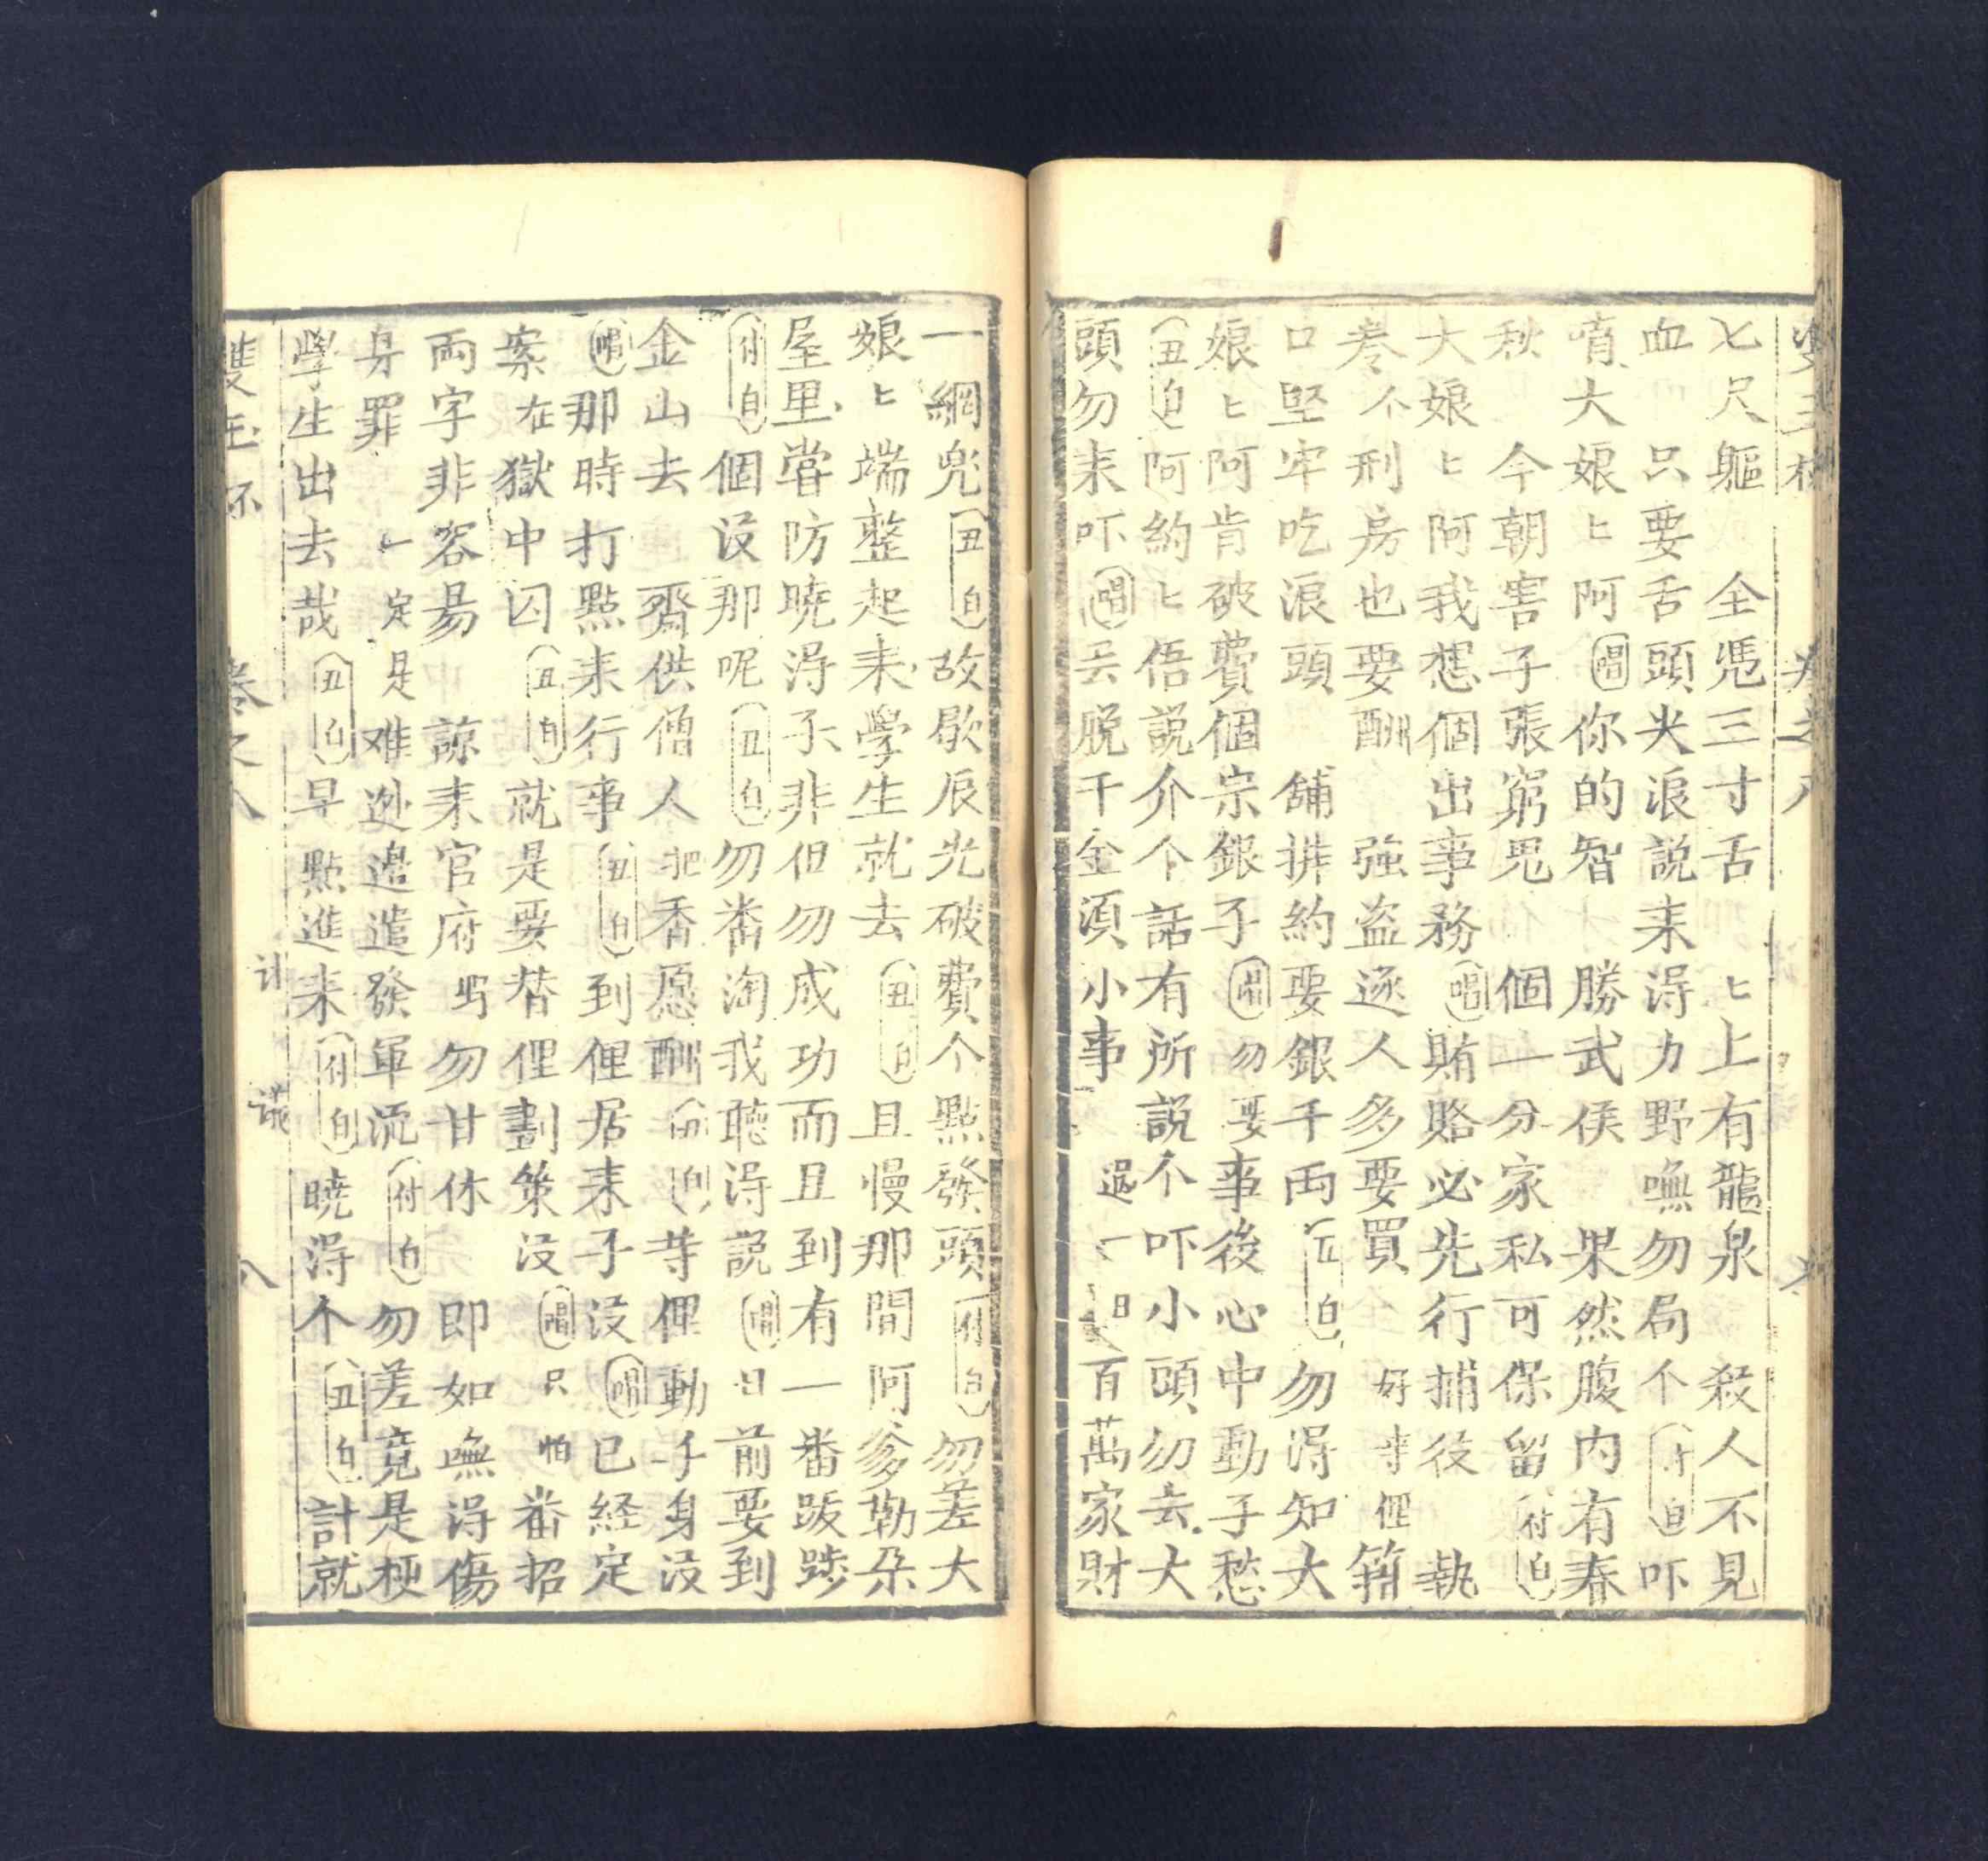 七尺軀　全凴三寸舌　ヒ上有龍泉　殺人不見
血　只要舌頭尖浪説耒淂力野嘸勿局个（付白）吓
唷大娘ヒ阿（唱）你的智　勝武侯　果然腹内有春
秋　今朝害子張窮鬼　個一分家私可保留（付白）
大娘ヒ阿我想個出事務（唱）賄賂必先行捕役　執
不刑房也要酬　強盗逐人多要買　好等俚籍
口堅牢吃浪頭　舖排約要銀千両（丑白）勿淂知大
娘ヒ阿肯破費個宗銀子（唱）勿要事後心中動子愁
（丑白）阿約ヒ俉説介个話有所説不吓小頭勿去大
頭勿耒吓（唱）丟脱千金湏小事　還一日百萬家財
一網兜（丑白）故歇辰光破費个點發頭（付白）勿差大
娘ヒ端整起耒學生就去（丑白）且慢那間阿爹勒朵
屋里嘗防曉淂子非但勿成功而且到有一番跋踄
（付白）個没那呢（丑白）勿畨淘我聴淂説（唱）日前要到
金山去　齋供僧人把香愿酬（付白）等俚動子身没
（唱）那時打點耒行事（丑白）到俚居耒子没（唱）已経定
案在獄中囚（丑白）就是要替俚劃策没（唱）只怕畨招
両字非容易　諒耒官府勿甘休　即如嘸淂傷
身罪　一定是难迯邉遣發軍流（付白）勿差竟是梗
學生出去哉（丑白）早點進耒（付白）曉淂个（丑白）計就
雙玉杯　卷之八　計議　八